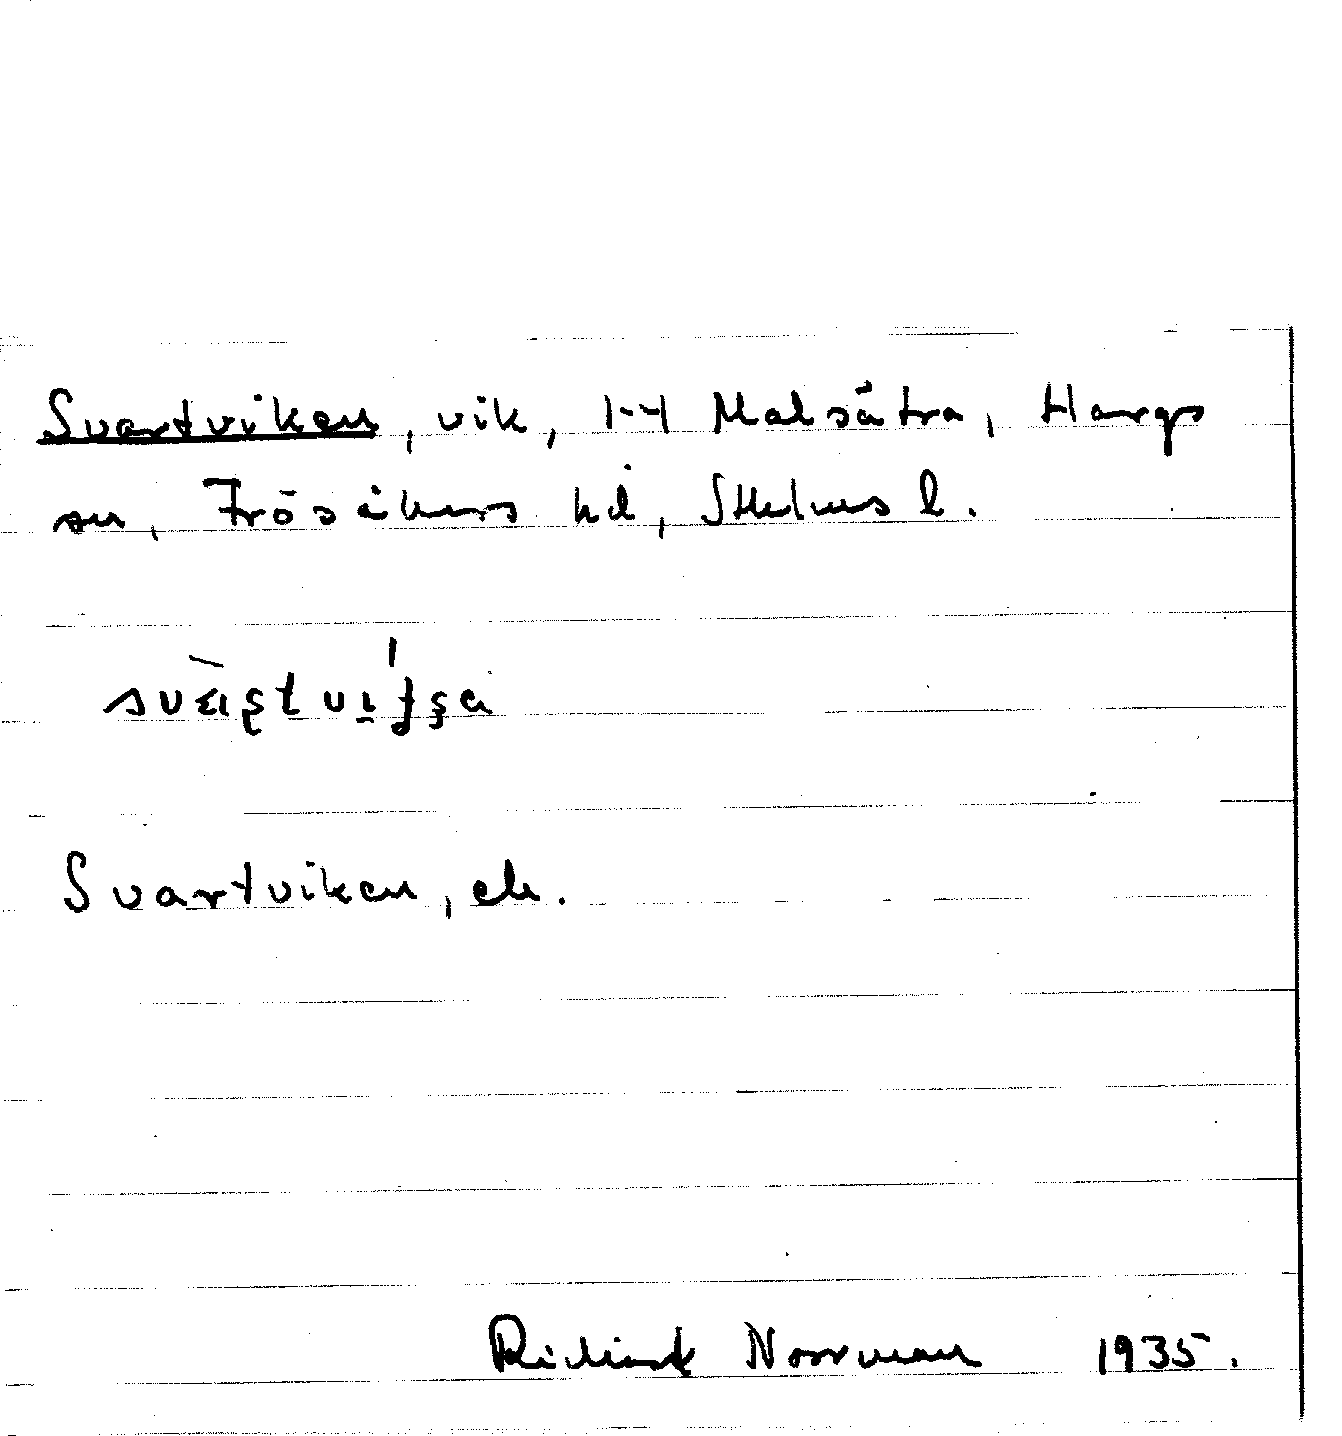 Svartviken, vik, 1-4 Malsätra, Hargs
sn, Frösåkers hd, Sthlms l.
Svartviken, ek.
Richard Norrman 1935.